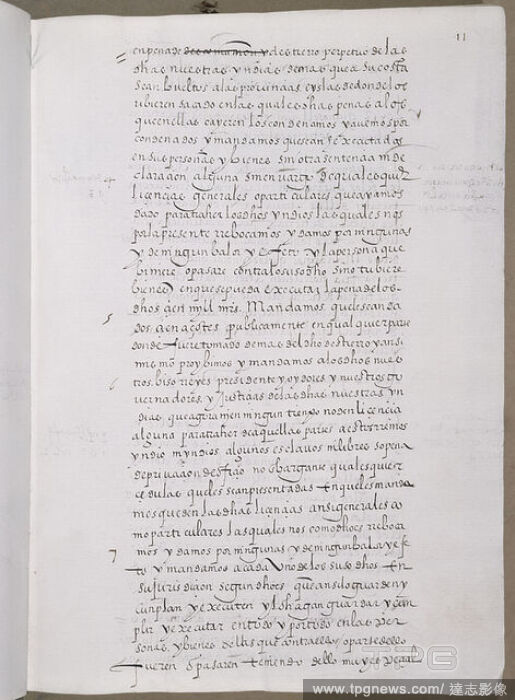 11
en pena de destierro perpetuo de las
dhas nuestras yndias demas que a su costa
sean bueltos a las provincias e yslas de donde los
ubieren sacado en las quales dhas penas a los
que en ellas cayeren los condenamos y avemos por
condenados y mandamos que sean executadas
en sus personas y bienes sin otra sentencia ni de
claraçion alguna sin enbargo de quales quier
licencias generales o particulares que ayamos
dado para traher los dhos yndios las quales nos
por la presente rrebocamos y damos por ningunas
y de ningun balor y efeto y la persona que
hiziere o pasare contra lo susodho si no tubiere
bienes en que se pueda executar la pena de los
dhos çien mill mrs. Mandamos que le sean da
dos çien açotes publicamente en qualquier parte
donde fuere tomado demas del dho destierro y ansi
5
mismo proybimos y mandamos a los dhos nues
tros bisorreyes presidente y oydores y nuestros go
6
vernadores y justicias de las dhas nuestras yn
dias que agora ni en ningun tiempo no den licencia
alguna para traher de aquellas partes a estos rreinos
yndio ni yndios algunos esclavos ni libres so pena
de privaçion de ofiçio no enbargante quales quier
cedulas que les sean presentadas en que les manda
mos que den las dhas licençias ansi generales co
mo particulares las quales nos como dho es rreboca
mos y damos por ningunas y de ningun balor y efe
7
to y mandamos a cada uno de los susodhos en
su jurisdicion segun dho es que ansi lo guarden y
cunplan y executen y lo hagan guardar y cun
plir y executar en todo y por todo en las per
sonas y bienes de los que contra ello o parte dello
fueren o pasaren teniendo dello muy especial
TPG
www.tpgnews.com/ 達志影像